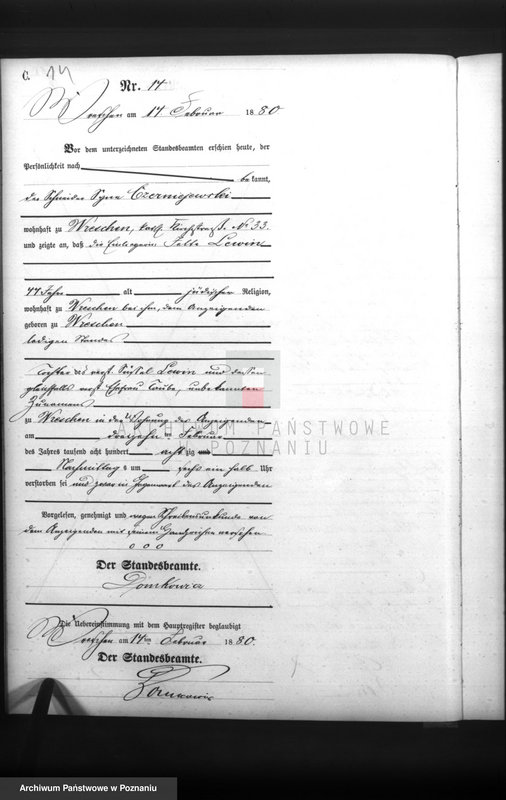 C. 14
Nr. 14
Wreschen am 14 Februar 1880
Vor dem unterzeichneten Standesbeamten erschien heute, der
Persönlichkeit nach
bekannt,
der Schneider Czerniejewski
wohnhaft zu Wreschen, No 33.
und zeigte an, daß die Lewin
47 Jahre alt jüdischer Religion,
wohnhaft zu Wreschen bei ihm, dem Anzeigenden
geboren zu Wreschen
ledigen Standes
Tochter des Lewin und dessen
gleichfalls Ehefrau unbekannten
Zunamens
zu Wreschen in der Wohnung des Anzeigenden
am dreizehn ten Februar
des Jahres tausend acht hundert acht zig und
Nachmittag s um sechs ein halb Uhr
verstorben sei und zwar in Gegenwart des Anzeigenden
Vorgelesen, genehmigt und wegen Schreibensunkunde von
dem Anzeigenden mit seinem Handzeichen versehen
o o o
Der Standesbeamte.
Die Uebereinstimmung mit dem Hauptregister beglaubigt
Wreschen am 14ten Februar 1880.
Der Standesbeamte.
ARCHIWUM PAŃSTWOWE
POZNANIU
Archiwum Państwowe w Poznaniu